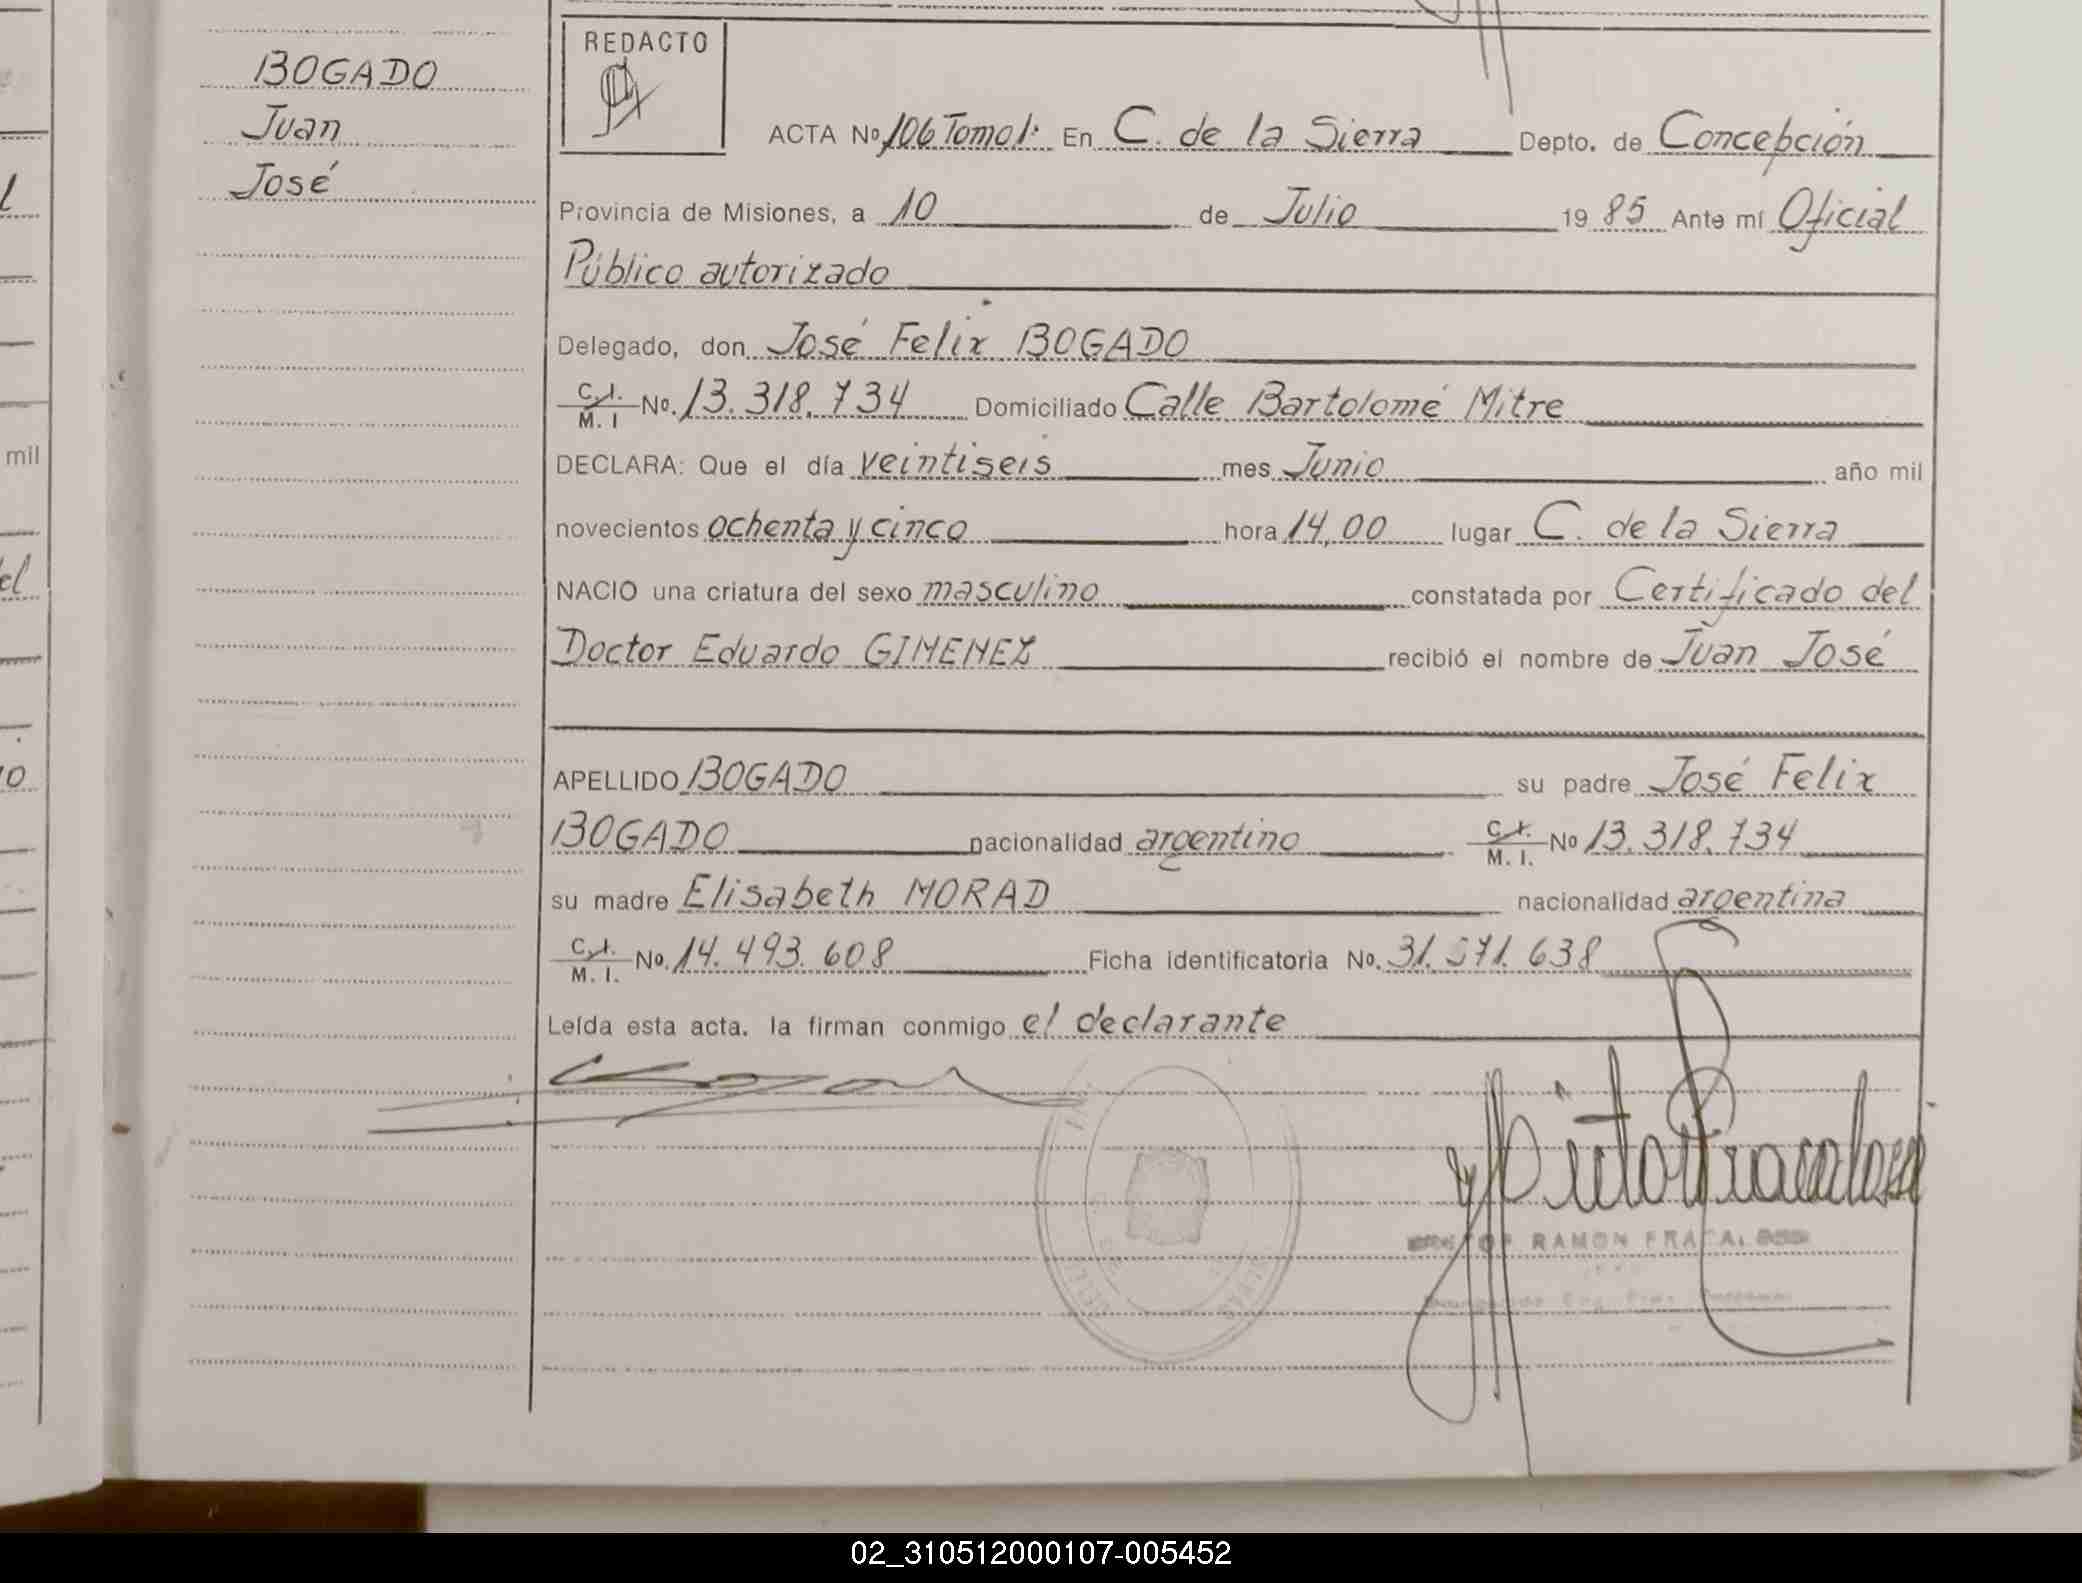 BOGADO
Juan
José
REDACTO
ACTA Nº 106 Tomo 1: En C. de la Sierra Depto. de Concepción
Provincia de Misiones, a 10 de Julio 1985 Ante mí Oficial
Público autorizado
Delegado, don José Felix BOGADO
C. I. M. I No. 13.318.734 Domiciliado Calle Bartolomé Mitre
DECLARA: Que el día veintiseis mes Junio año mil
novecientos ochenta y cinco hora 14,00 lugar C. de la Sierra
NACIO una criatura del sexo masculino constatada por Certificado del
Doctor Eduardo GIMENEZ recibió el nombre de Juan José
APELLIDO BOGADO su padre José Felix
BOGADO nacionalidad argentino C. I. M. I. Nº 13.318.734
su madre Elisabeth MORAD nacionalidad argentina
C. I. M. I. No. 14.493.608 Ficha identificatoria No. 31.571.638
Leída esta acta, la firman conmigo el declarante
RAMON
mil
el
02_310512000107-005452